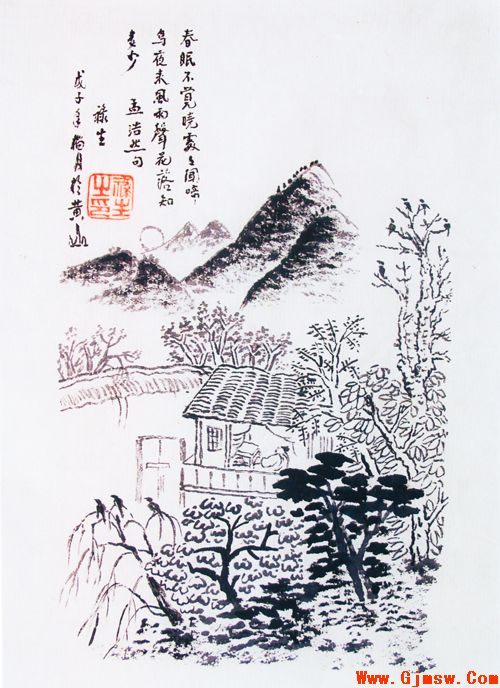 春眠不覺曉處々聞啼
鸟夜来風雨聲花落知
多少 孟浩然句
祿生
戊子年月於黄山
祿生之印
Www.Gjmsw.Com